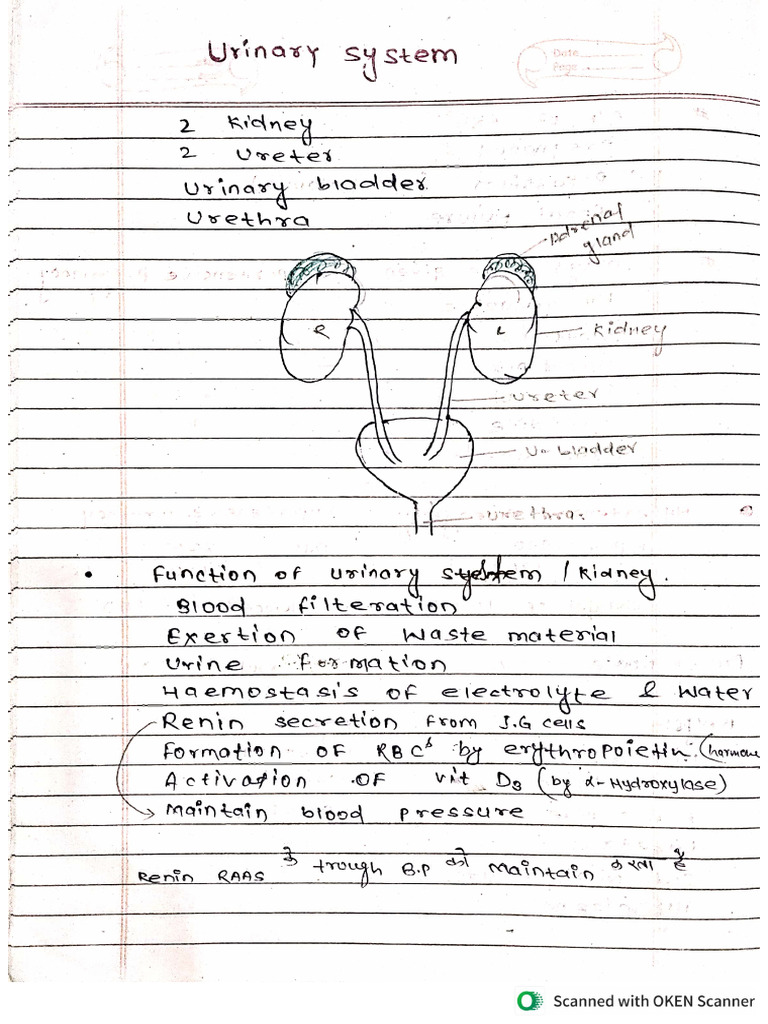 Urinary system
Date
Page
2 Kidney
2 Ureter
Urinary bladder
Urethra
Adrenal gland
R
L
Kidney
Ureter
U. bladder
Urethra
• Function of urinary system / Kidney.
Blood filteration
Exertion of waste material
Urine formation
Haemostasis of electrolyte & water
Renin secretion from J.G cells
Formation of RBCs by erythropoietin (harmone
Activation of vit D3 (by α-Hydroxylase)
Maintain blood pressure
Renin RAAS के trough B.P को maintain करता है
Scanned with OKEN Scanner